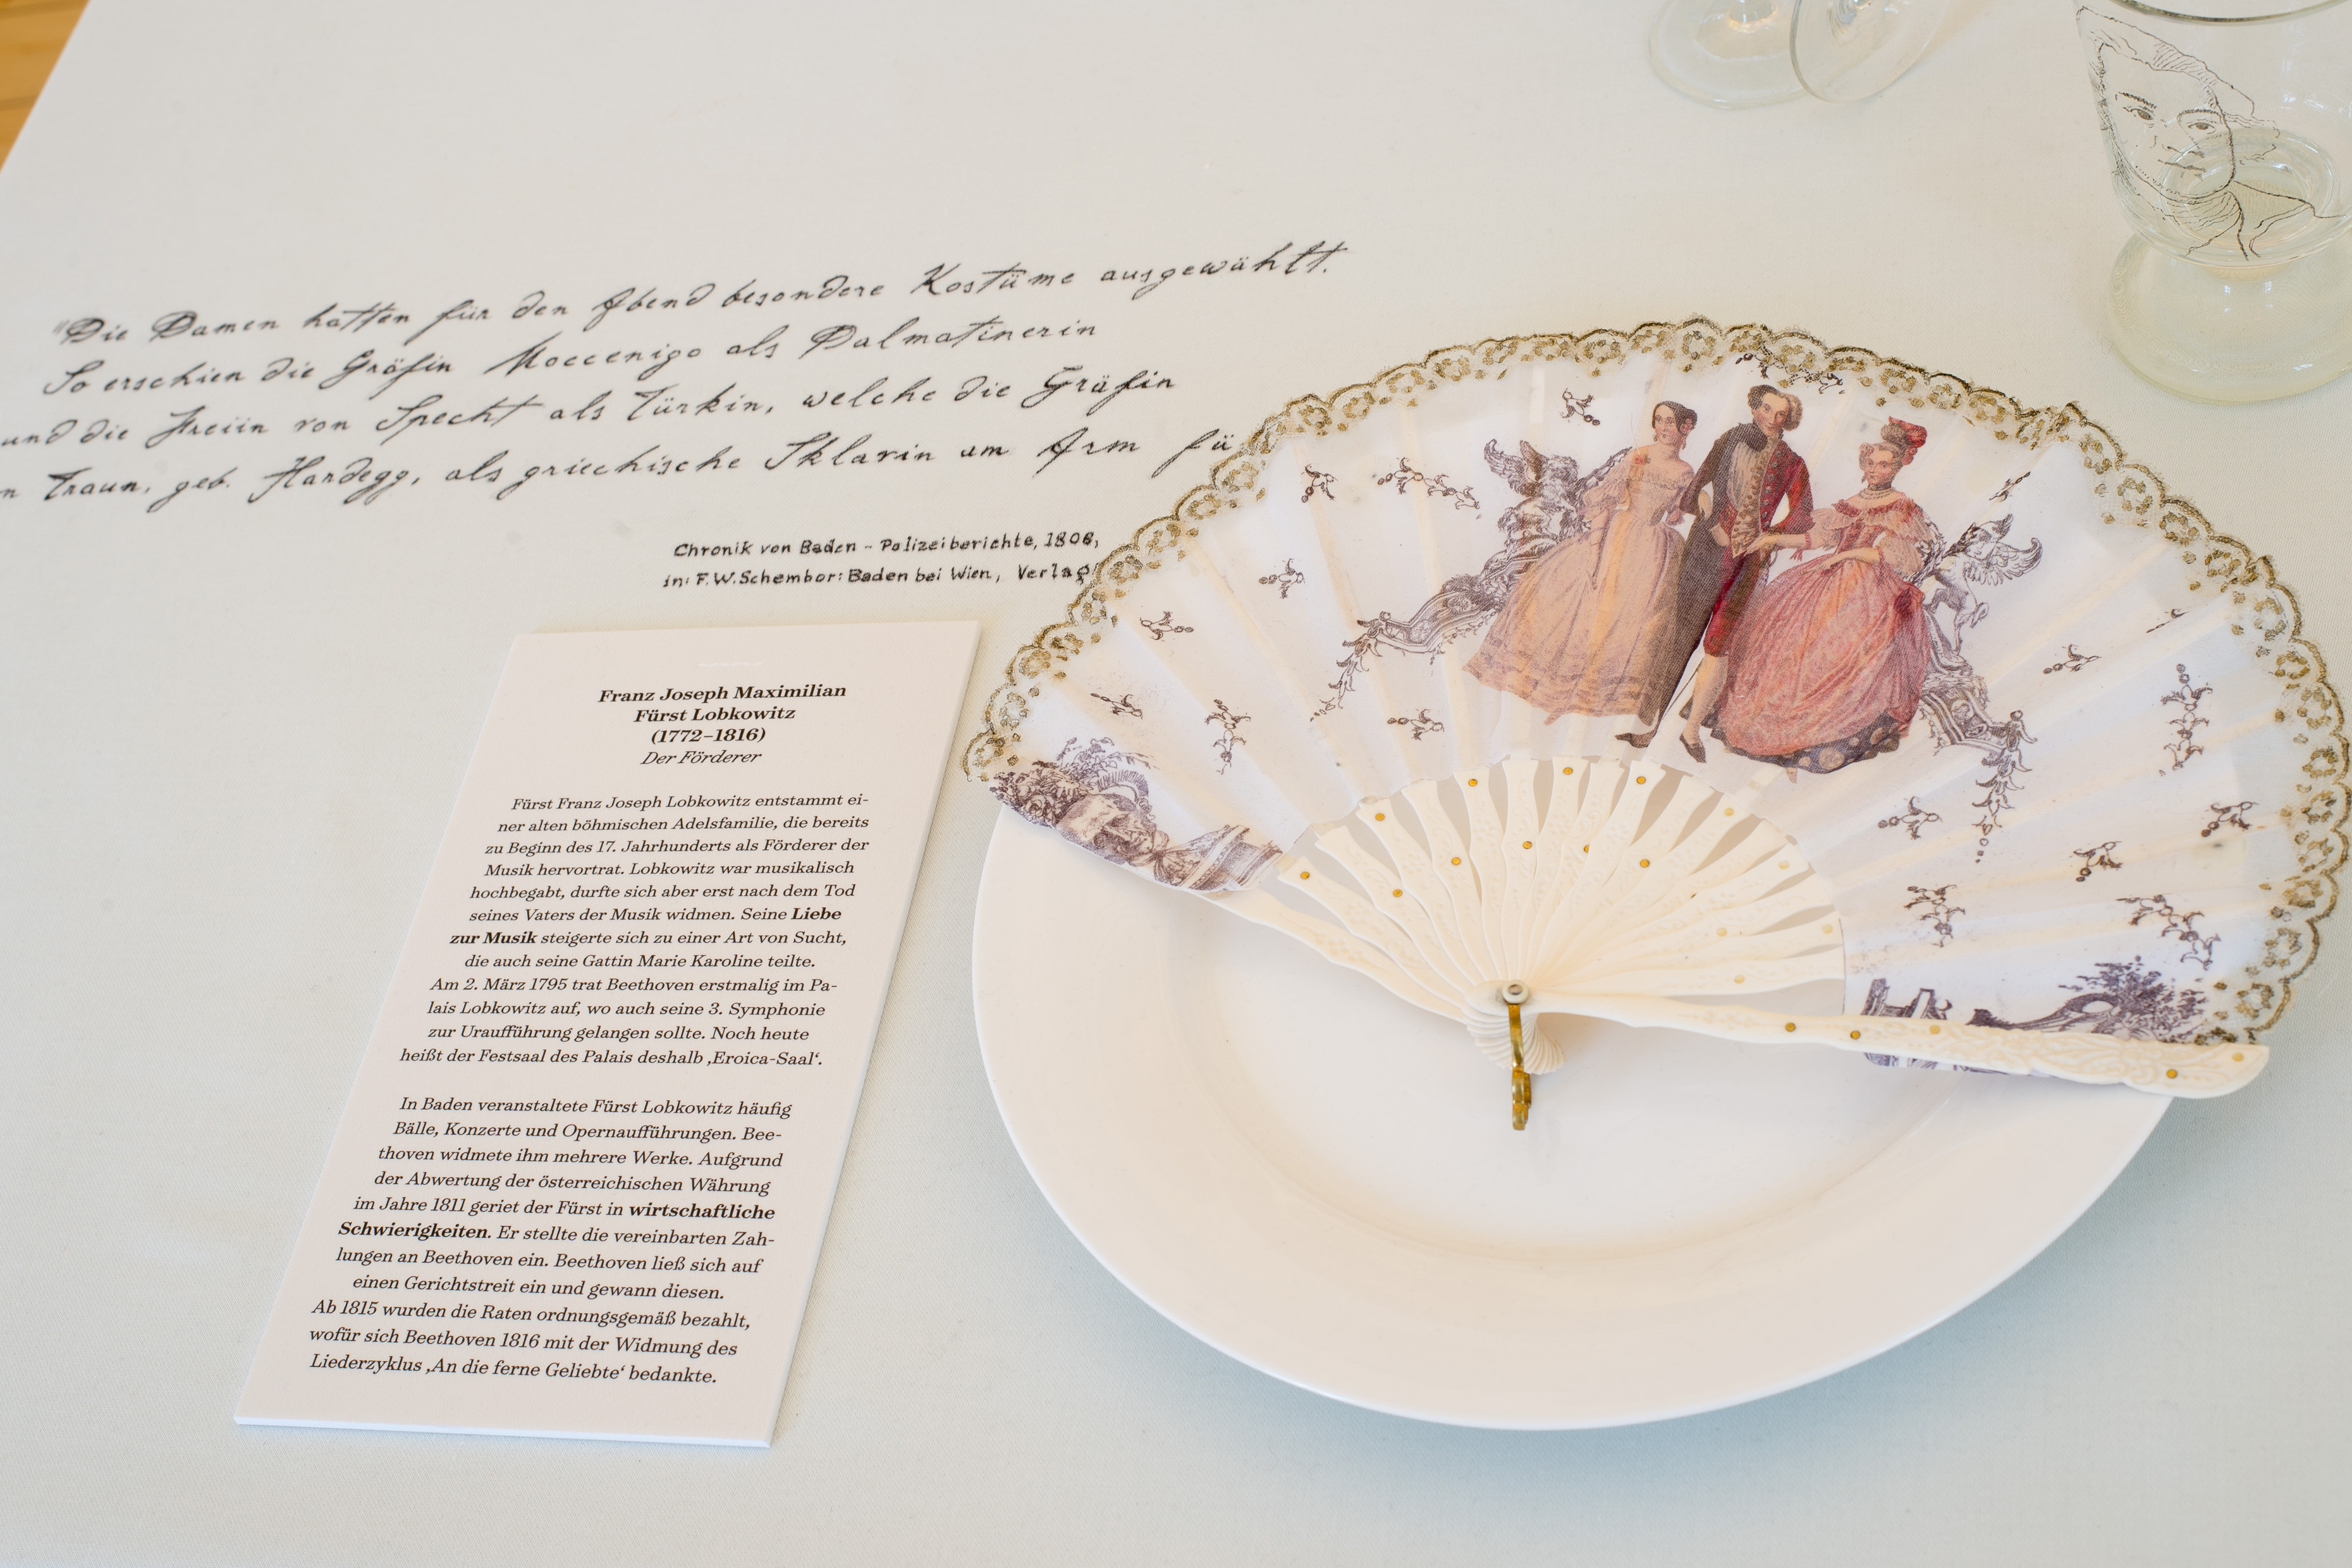 "Die Damen hatten für den Abend besondere Kostüme ausgewählt.
So erschien die Gräfin Moccenigo als Dalmatinerin
und die Freiin von Specht als Türkin, welche die Gräfin
n Traun, geb. Hardegg, als griechische Sklavin am Arm fü
Chronik von Baden - Polizeiberichte, 1808,
in: F.W. Schembor: Baden bei Wien, Verlag
Franz Joseph Maximilian
Fürst Lobkowitz
(1772–1816)
Der Förderer
Fürst Franz Joseph Lobkowitz entstammt ei-
ner alten böhmischen Adelsfamilie, die bereits
zu Beginn des 17. Jahrhunderts als Förderer der
Musik hervortrat. Lobkowitz war musikalisch
hochbegabt, durfte sich aber erst nach dem Tod
seines Vaters der Musik widmen. Seine Liebe
zur Musik steigerte sich zu einer Art von Sucht,
die auch seine Gattin Marie Karoline teilte.
Am 2. März 1795 trat Beethoven erstmalig im Pa-
lais Lobkowitz auf, wo auch seine 3. Symphonie
zur Uraufführung gelangen sollte. Noch heute
heißt der Festsaal des Palais deshalb ‚Eroica-Saal‘.
In Baden veranstaltete Fürst Lobkowitz häufig
Bälle, Konzerte und Opernaufführungen. Bee-
thoven widmete ihm mehrere Werke. Aufgrund
der Abwertung der österreichischen Währung
im Jahre 1811 geriet der Fürst in wirtschaftliche
Schwierigkeiten. Er stellte die vereinbarten Zah-
lungen an Beethoven ein. Beethoven ließ sich auf
einen Gerichtstreit ein und gewann diesen.
Ab 1815 wurden die Raten ordnungsgemäß bezahlt,
wofür sich Beethoven 1816 mit der Widmung des
Liederzyklus ‚An die ferne Geliebte‘ bedankte.